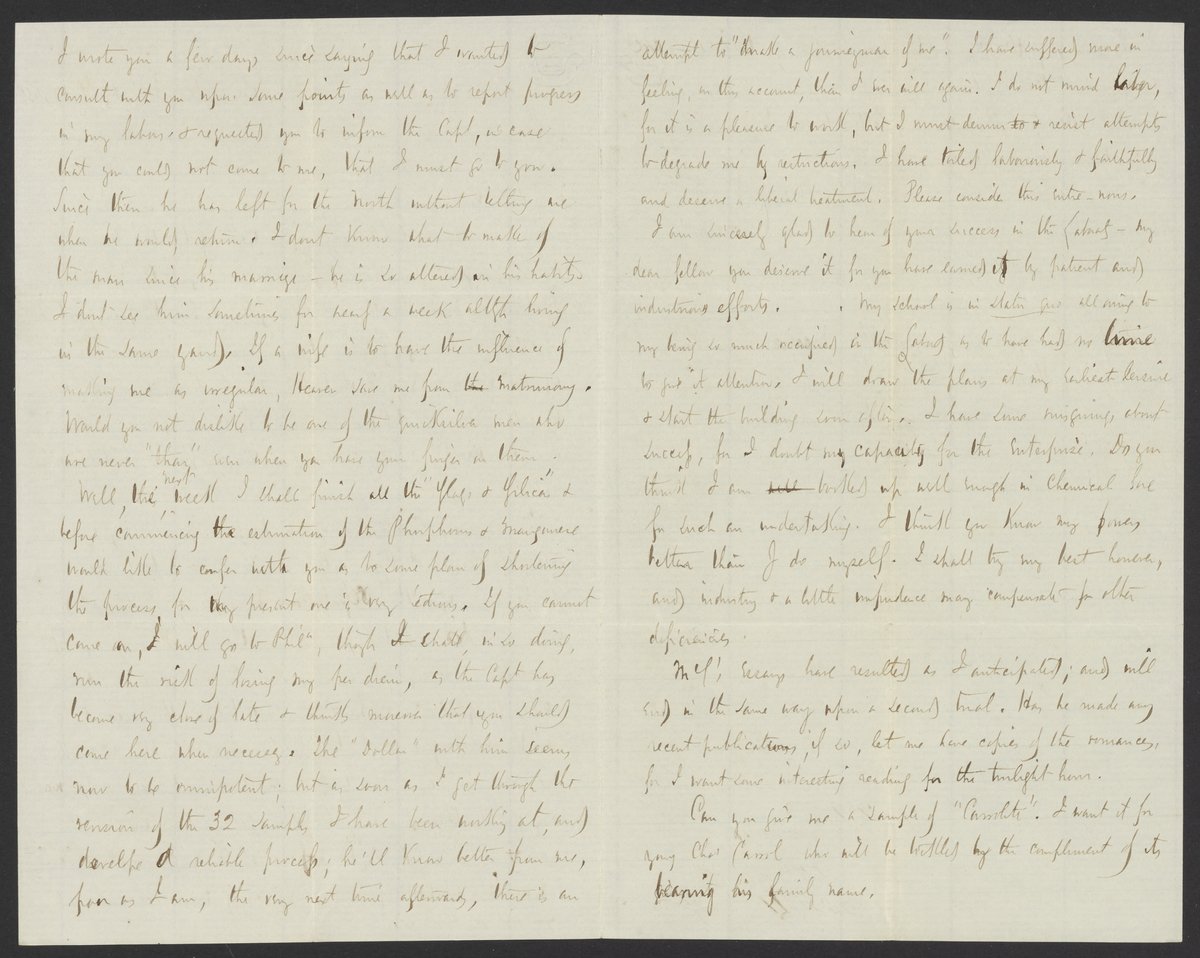 I wrote you a few days since saying that I wanted to
consult with you upon some points as well as to report progress
in my labors & requested you to inform the Capt, in case
that you could not come to me, that I must go to you.
Since then he has left for the North without telling me
when he would return. I dont know what to make of
the man since his marriage – he is so altered in his habits.
I dont see him sometimes for nearly a week altho living
in the same yard. If a wife is to have the influence of
making me as irregular, Heaven save me from the matrimony.
Would you not dislike to be one of the quicksilver men who
are never "thar" even when you have your finger on them.
Well, the next week I shall finish all the "Slags & Silicas" &
before commencing the estimation of the Phosphorus & Manganese
would like to confer with you as to some plan of shortening
the process for my present one is very tedious. If you cannot
come on, I will go to Phila, though I shall, in so doing,
run the risk of losing my per diem, as the Capt has
become very close of late & thinks moreover that you should
come here when necessy. The "Dollar" with him seems
now to be omnipotent; but as soon as I get through the
revision of the 32 samples I have been working at, and
develope a reliable process; he'll know better from me,
poor as I am, the very next time afterwards, there is an
attempt to "make a journeyman of me". I have suffered more in
feeling, on this account, than I ever will again. I do not mind labor,
for it is a pleasure to work, but I must demur to & resist attempts
to degrade me by restrictions. I have toiled laboriously & faithfully
and deserve a liberal treatment. Please consider this entre-nous.
I am sincerely glad to hear of your success in the Laborat – my
dear fellow you deserve it for you have earned it by patient and
industrious efforts. My school is in statu quo all owing to
my being so much occupied in the Laborat as to have had no time
to give it attention. I will draw the plans at my earliest leisure
& start the building soon after. I have some misgivings about
success, for I doubt my capacity for the enterprise. Do you
think I am well bottled up well enough in Chemical lore
for such an undertaking. I think you know my powers
better than I do myself. I shall try my best however,
and industry & a little impudence may compensate for other
deficiencies.
essays have resulted as I anticipated; and will
end in the same way upon a second trial. Has he made any
recent publications, if so, let me have copies of the romances,
for I want some interesting reading for the twilight hour.
Can you give me a sample of "Carrolite". I want it for
young Chas Carrol who will be tickled by the compliment of its
bearing his family name.